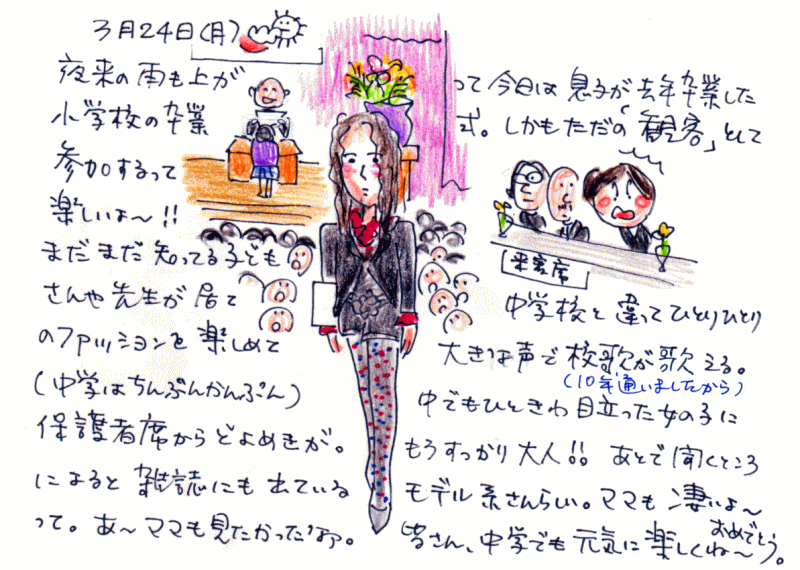 3月24日(月)
夜来の雨も上がって今日は息子が去年卒業した
小学校の卒業式。しかもただの「観客」として
参加するって
楽しいよ〜!!
来賓席
まだまだ知ってる子ども
さんや先生が居て中学校と違ってひとりひとり
のファッションを楽しめて大きな声で校歌が歌える。
(10年通いましたから)
(中学はちんぷんかんぷん)中でもひときわ目立った女の子に
保護者席からどよめきが。もうすっかり大人!! あとで聞くところ
によると雑誌にも出ているモデル系さんらしい。ママも凄いよ〜
って。あ〜ママも見たかったなァ。皆さん、中学でも元気に楽しくね〜おめでとう。